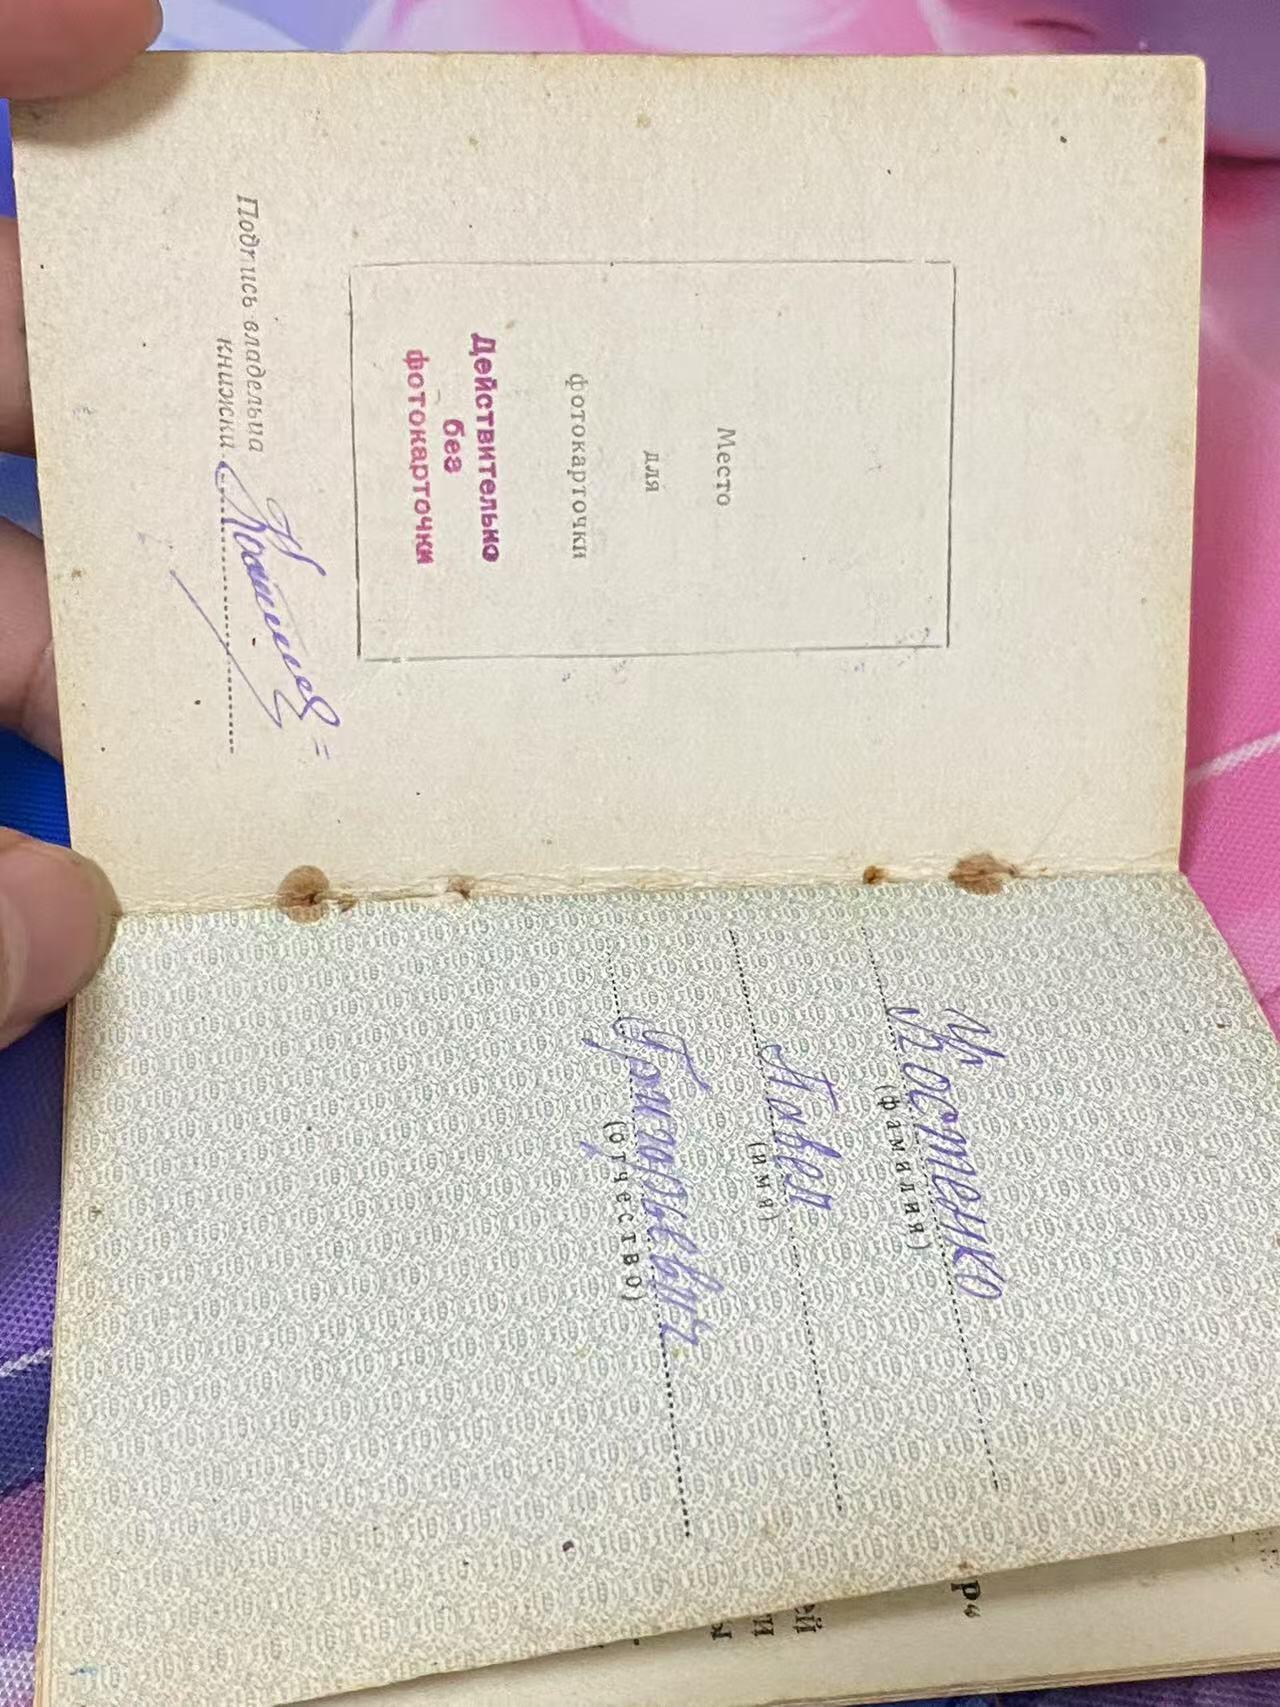 Место
для
фотокарточки
Действительно
без
фотокарточки
Подпись владельца
книжки
Костенко
(фамилия)
Павел
(имя)
Григорьевич
(отчество)